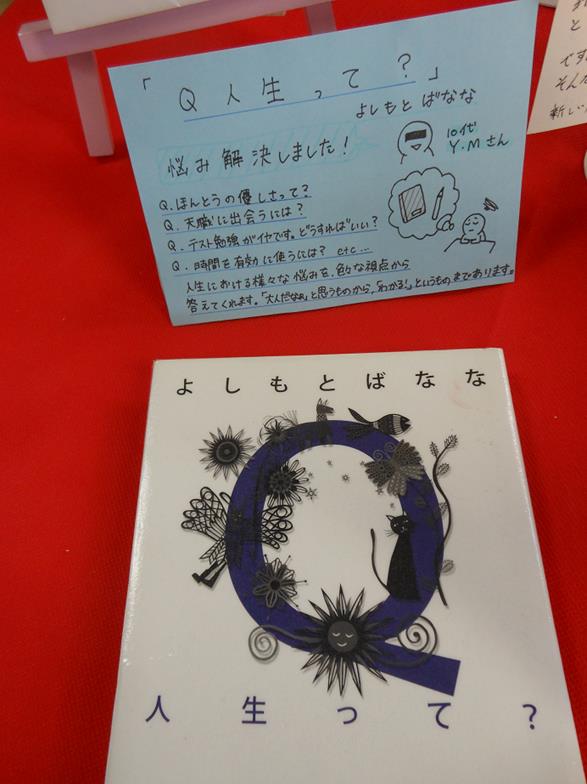 「Q人生って?」
よしもと ばなな
悩み解決しました!
10代
Y.Mさん
Q.ほんとうの優しさって?
Q.天職に出会うには?
Q.テスト勉強がイヤです。どうすればいい?
Q.時間を有効に使うには? etc...
人生における様々な悩みを、色々な視点から
答えてくれます。「大人だなぁ」と思うものから、「わかる!」というものまであります。
と
です
そん
新しい
よしもとばなな
Q
人生って?